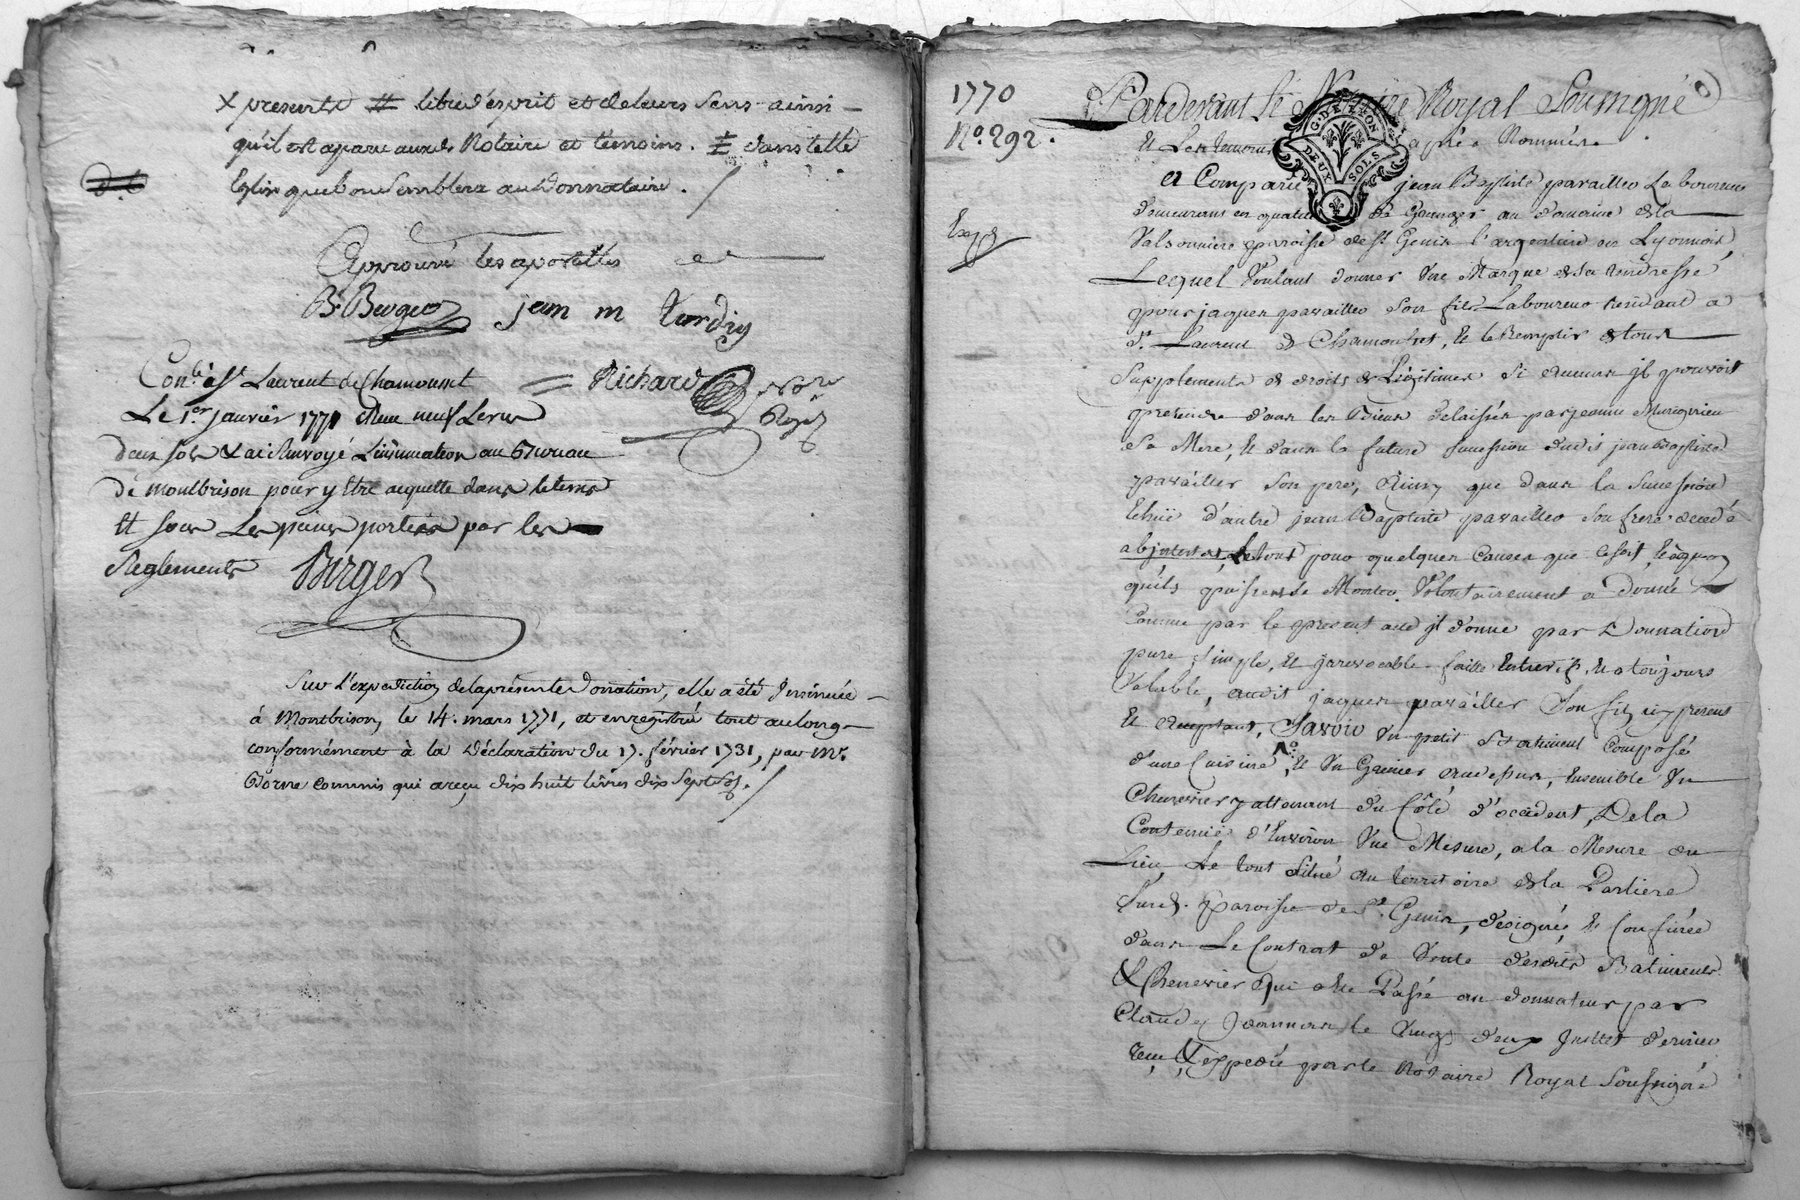 X presents # libre d'esprit et de leurs sens ainsi
qu'il est aparu auxds Notaire et témoins. ± dans telle
Eglise que bon semblera au donnataire.
Approuvé les apostilles
B. Berger jean m tardy
Richard Nore Royal
Conlé à St Laurent de Chamousset
Le 1er janvier 1771 Reçu neuf Livres
deux sols & ai Renvoyé L'insinuation au Bureau
de montbrison pour y Etre acquittée dans le tems
Et sous Les peines portées par les
Reglements Berger
Sur l'expedition de la présente Donation, elle a été Insinuée
à Montbrison, le 14. mars 1771, et enregistrée tout au long
conformément à la Déclaration du 17. février 1731, par Mr.
commis qui a reçu dix huit livres dix sept sols.
1770
No. 292.
Expé
Pardevant le Notaire Royal Soussigné
G. DE LYON
DEUX SOLS
Et Les témoins après Nommés
a Comparu jean Baptiste pavailler Laboureur
demeurant en qualité de Granger au domaine de la
Valsonniere paroisse de St Genis l'argentiere en Lyonnois
Lequel Voulant donner Une Marque de Sa tendresse
pour jacques pavailler Son fils Laboureur residant a
St. Laurent de Chamousset, Et le Remplir de tous
Supplements de droits de Légitimes Si aucuns jl pouvoit
pretendre dans les Biens delaissés par jeanne
Sa Mere, Et dans la future Succession dudit jean Baptiste
pavailler Son pere, Ainsy que dans la Succession
Echüe d'autre jean Baptiste pavailler Son frere décédé
abjntestat, Le tout pour quelques Causes que ce soit,
qu'ils puissent Se Monter. Volontairement a donné
Comme par le present acte jl donne par Donnation
pure Simple, Et jrrevocable faitte Entrevifs, Et a toujours
Valable, audit jacques pavailler Son fils icy present
Et acceptant, Savoir Un petit Batiment Composé
d'une Cuisine, Et Un Grenier au dessus, Ensemble Un
Chenevier y attenant du Côté d'occident, De la
Contenue d'Environ Une Mesure, a la Mesure du
Lieu, Le tout Situé au territoire de la Parliere
Susd. Paroisse de St. Genis, designés, Et Confinés
dans Le Contrat de Vente desdits Batiments
Et Chenevier Qui a été Passé au donnateur par
Claude Jeannon le Vingt deux Juillet dernier
reçu Et expedié par le Notaire Royal Soussigné